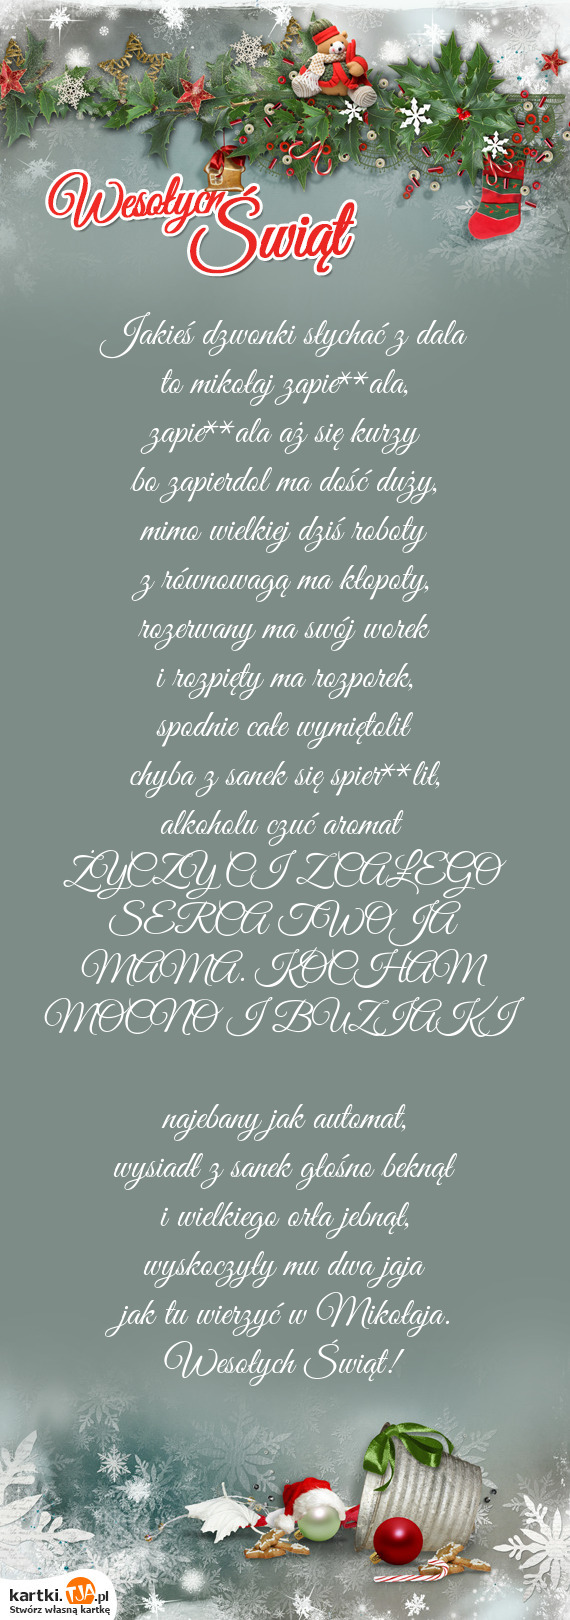 Wesołych
Świąt
Jakieś dzwonki słychać z dala
to mikołaj zapie**ala,
zapie**ala aż się kurzy
bo zapierdol ma dość duży,
mimo wielkiej dziś roboty
z równowagą ma kłopoty,
rozerwany ma swój worek
i rozpięty ma rozporek,
spodnie całe wymiętolił
chyba z sanek się spier**lił,
alkoholu czuć aromat
ŻYCZY CI Z CAŁEGO
SERCA TWOJA
MAMA. KOCHAM
MOCNO I BUZIAKI
najebany jak automat,
wysiadł z sanek głośno beknął
i wielkiego orła jebnął,
wyskoczyły mu dwa jaja
jak tu wierzyć w Mikołaja.
Wesołych Świąt!
kartki.TJA.pl
Stwórz własną kartkę